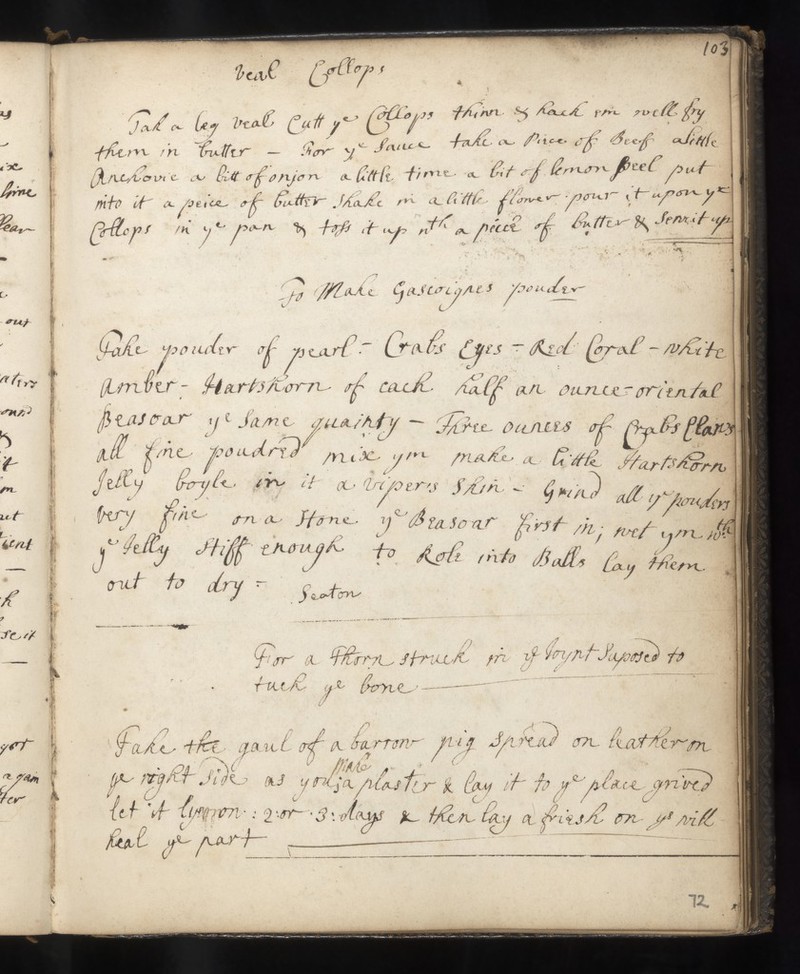 103
Veal Collops
Tak a leg veal Cutt ye Collops thinn & hack em well fry
them in butter - For ye Sauce take a Piece of Beef a little
Anchovie a bitt of onjon a little time a bit of lemon Peel put
into it a peice of butter Shake in a little flower pour it upon ye
Collops in ye pan & toss it up wth a peice of butter & Serv it up
To Make Gascoignes pouder
Take pouder of pearl - Crabs Eyes - Red Coral - white
Amber - Hartshorn of each half an ounce - oriental
Beasoar ye Same quainty - Three ounces of Crabs Claws
all fine poudred mix ym make a little Hartshorn
Jelly boyle in it a vipers Skin - Grind all ye pouders
very fine on a Stone ye Beasoar first in; wet ym wth
ye Jelly Stiff enough to Role into Balls lay them
out to dry - Seaton
For a Thorn struck in ye Joynt Suposed to
tuch ye bone
Take the gaul of a barrow pig Spread on leather on
ye right Side as you make a plaster & lay it to ye place grived
let it lye on : 2 : or : 3 : days & then lay a friesh on ys will
heal ye part
72